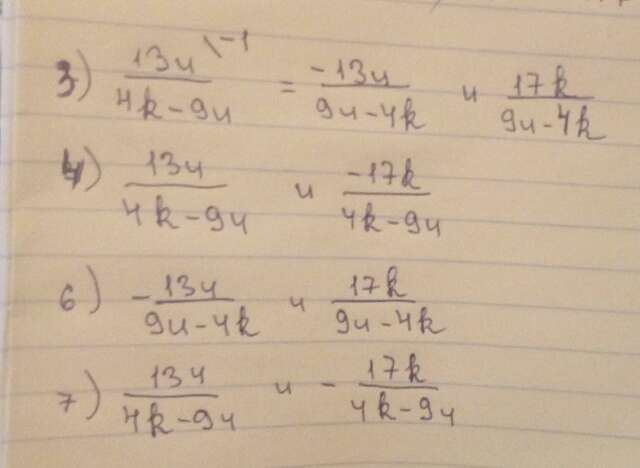 3) 13u\-1 / 4k-9u = -13u / 9u-4k и 17k / 9u-4k
4) 13u / 4k-9u и -17k / 4k-9u
6) - 13u / 9u-4k и 17k / 9u-4k
7) 13u / 4k-9u и - 17k / 4k-9u